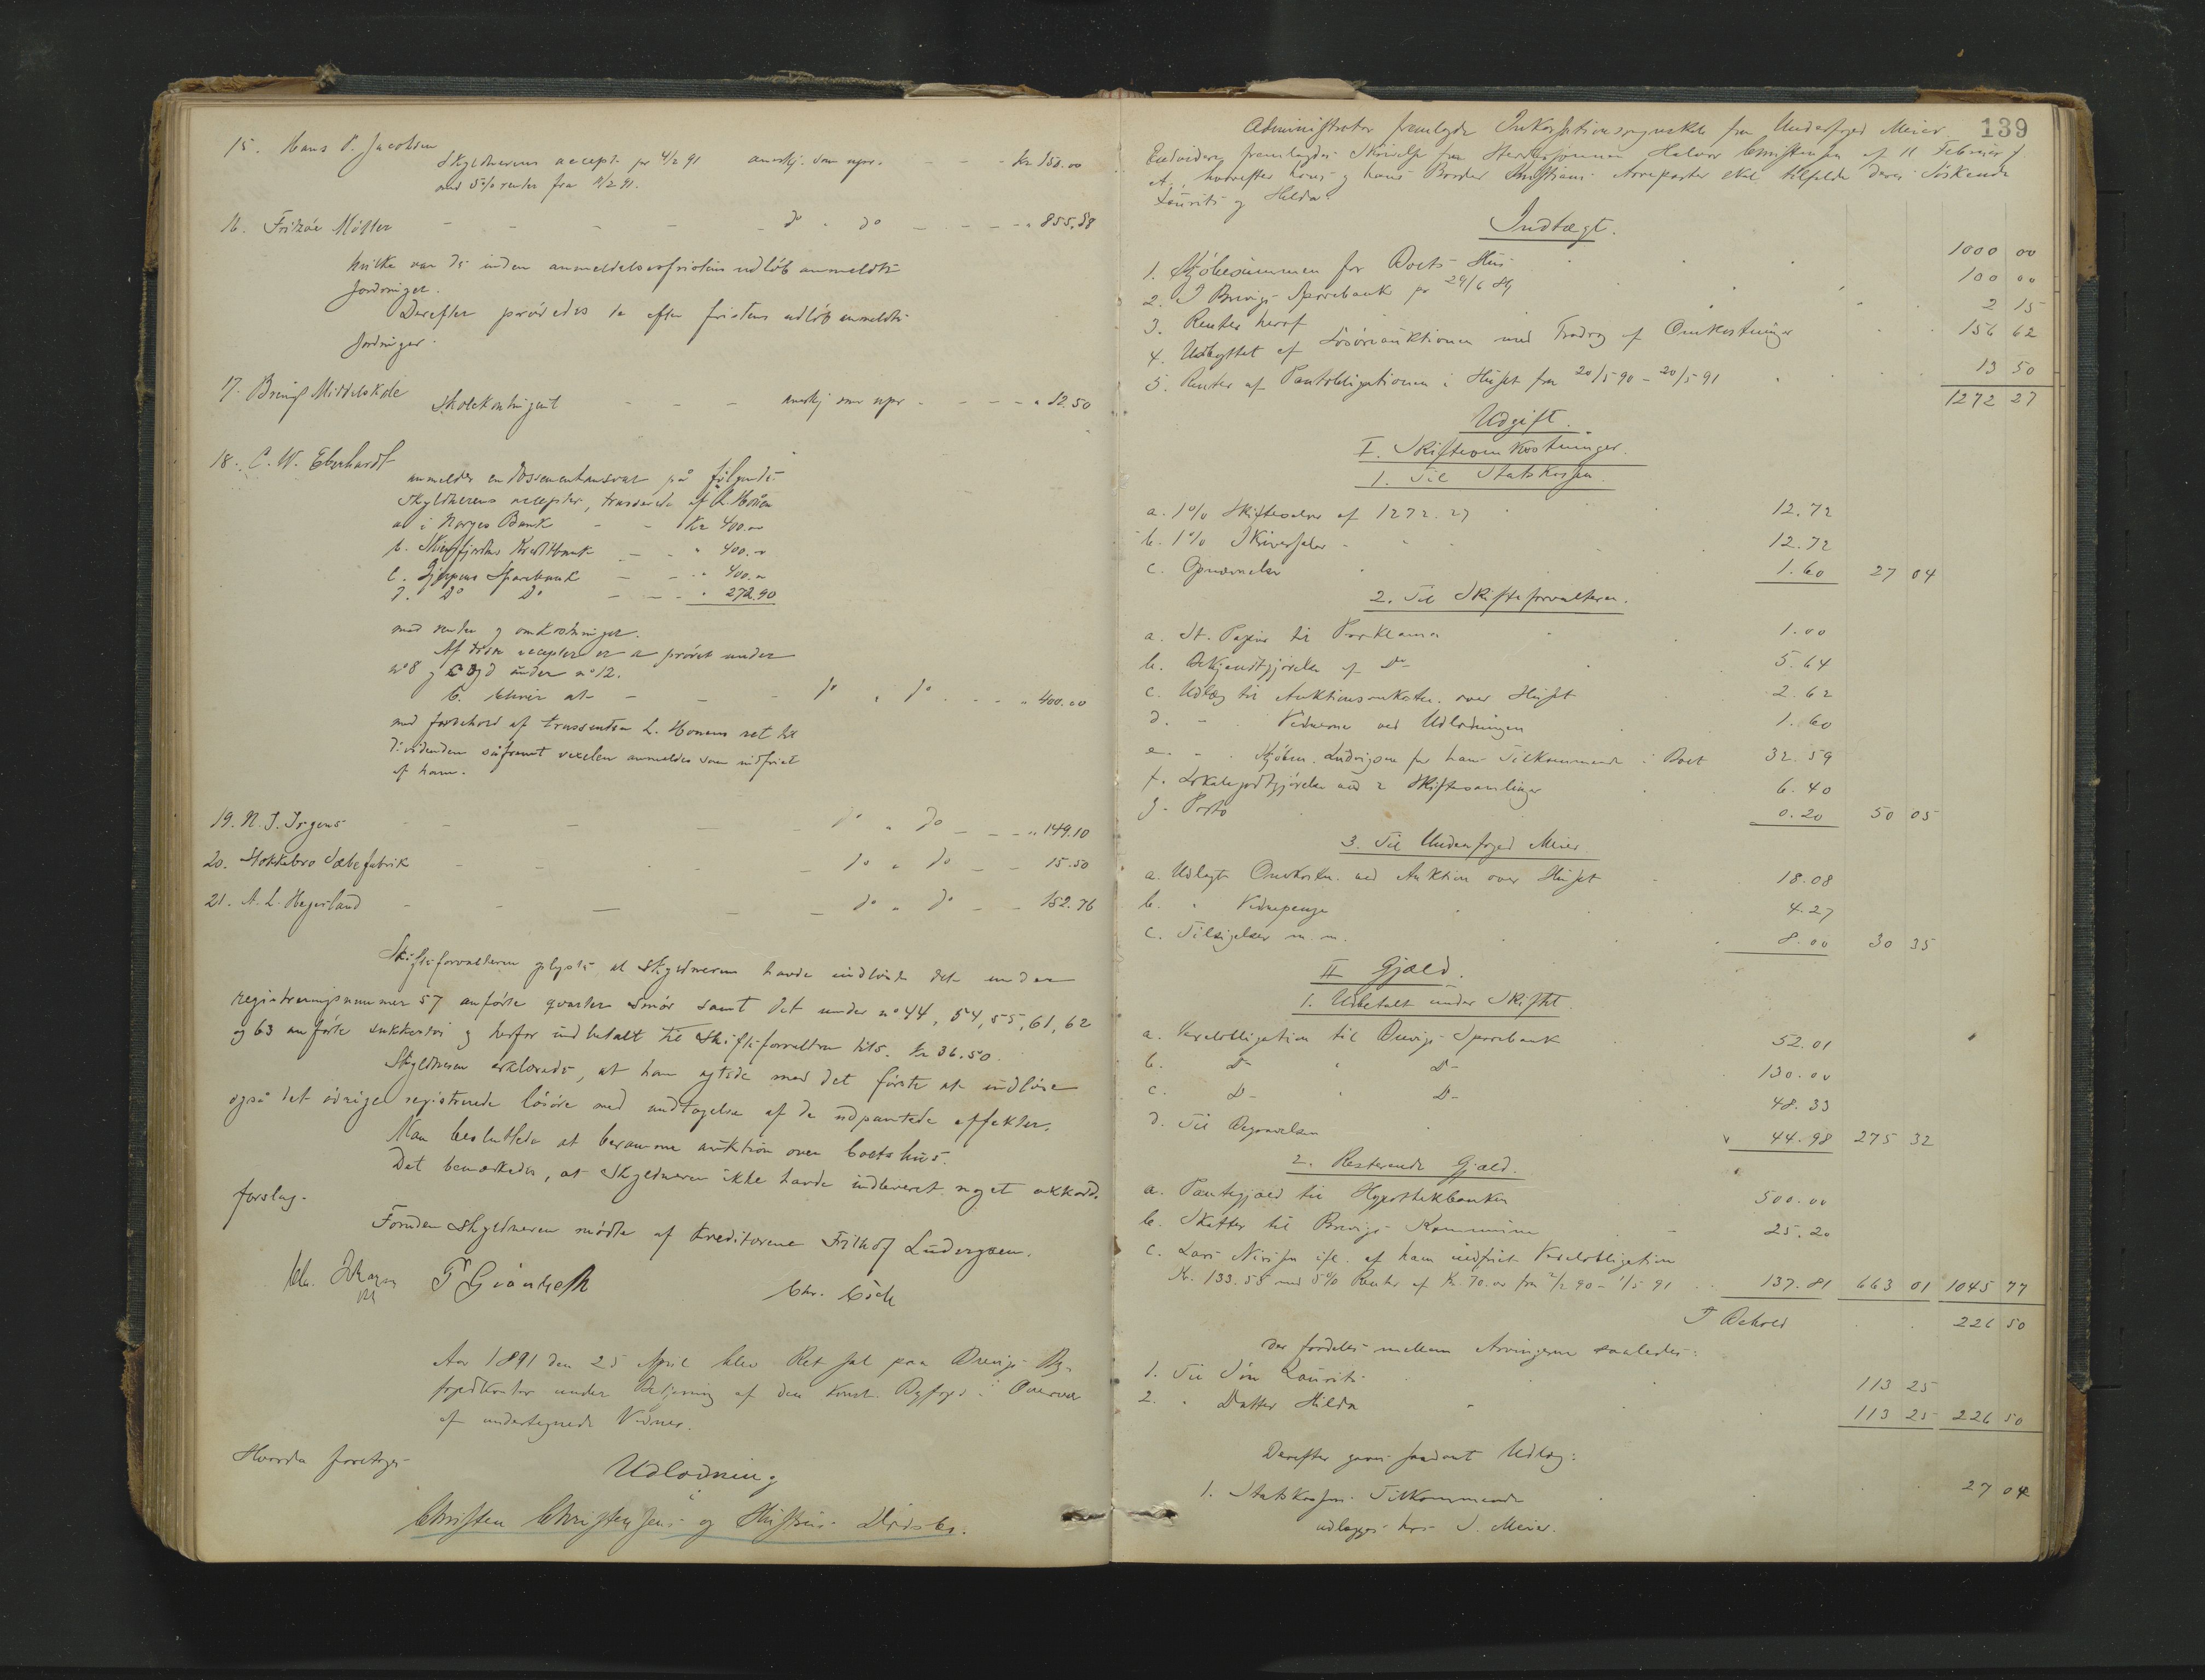 15. Hans P. Jacobsen
Skyldnerens accept pr 4/2 91 anerkj. som upr. - - - kr 150.00
med 5% renter fra 4/2 91.
16. Fritzöe Möller - - - - - do - do - - - - " 855.58
hvilke var de inden anmeldelsesfristens udløb anmeldte
fordringer.
Derefter prøvedes de efter fristens udløb anmeldte
fordringer.
17. Brevigs Middelskole
Skolekontingent - - - anerkj som upr - - - - " 12.50
18. C. W. Eberhardt
anmelder endossementansvar på følgende
skyldnerens accepter, trasserede af L. Honen
a i Norges Bank - - Kr 400.00
b. Skiensfjordens Kreditbank - - " 400.00
c. Gjerpens Sparebank - - " 400.00
d. Do Do - - - " 272.90
med renter og omkostninger.
Af disse accepter er a prøvet under
no 8 og c og d under no 12.
b. blev at - - - do " do - - - " 400.00
med forbehold af trassenten L. Honens ret til
dividenden såfremt vexelen anmeldes som indfriet
af ham.
19. N. J. Irgens - - - - - do " do - - - " 149.10
20. Stokkebro Sæbefabrik - - - - do " do - - 15.50
21. A. L. Hegerland - - - - - do " do - - 152.76
Skifteforvalteren oplyste at skyldneren havde indløst det under
registreringsnummer 57 anførte kvarter smør samt det under no 44, 54, 55, 61, 62
og 63 anførte sukkertøi og herfor indbetalt til skifteforvalteren tils. kr 36.50.
Skyldneren erklærede, at han agtede med det første at indløse
også det øvrige registrerede løsøre med undtagelse af de udpantede effekter.
Man besluttede at beramme auktion over boets hus.
Det bemærkedes, at skyldneren ikke havde indleveret noget akkord-
forslag.
Foruden skyldneren mødte af kreditorerne Frithof Ludvigsen.
Aar 1891 den 25 April blev Ret sat paa Brevigs By-
fogedkontor under Betjening af den konst. Byfoged i Overvær
af undertegnede Vidner.
Hvorda foretoges
Udlodning
i
Christen Christensens og Hustrus Dødsbo.
139
Administrator fremlagde Inkassationsregnskab fra Underfoged Meier.
Endvidere fremlagdes Skrivelse fra Halvor Christensen af 11 Februar d.
A., hvorefter hans og hans Broder Kristians Arveparter skal tilfalde deres Søskende
Laurits og Hilda.
Indtægt.
1. Kjøbesummen for Boets Hus 1000 00
2. I Brevigs Sparebank pr 29/6 89 100 00
3. Renter heraf 2 15
4. Udbyttet af Løsøreauktionen med Fradrag af Omkostninger 156 62
5. Renter af Pantobligationen i Huset fra 20/5 90 - 20/5 91 13 50
1272 27
Udgift.
I. Skifteomkostninger.
1. Til Statskassen.
a. 1% Skifteafg. af 1272.27 12.72
b. 1% Skriversalær 12.72
c. Opnævnelse 1.60 27 04
2. Til Skifteforvalteren.
a. St. Papir til Proklama 1.00
b. Bekjendtgjørelse af Do 5.64
c. Udlæg til Auktionsomkostn. over Huset 2.62
d. - Vidnerne ved Udlodningen 1.60
e. - Kjøbm. Ludvigsen for hans Tilkommende i Boet 32.59
f. Lokalegodtgjørelse ved 2 Skiftesamlinger 6.40
g. Porto 0.20 50 05
3. Til Underfoged Meier
a. Udlagte Omkostn. ved Auktion over Huset 18.08
b. " Vidnepenge 4.27
c. Tilsigelser m. m. 8.00 30 35
II Gjæld.
1. Udbetalt under Skiftet.
a. Vexelobligation til Brevigs Sparebank 52.01
b. Do " Do 130.00
c. Do " Do 48.33
d. Til Begravelsen 44.98 275 32
2. Resterende Gjæld.
a. Pantegjæld til Hypothekbanken 500.00
b. Skatter til Brevigs Kommune 25.20
c. Lars Nirisen ifl. af ham indfriet Vexelobligation
Kr. 133.55 med 5% Renter af Kr. 70.00 fra 2/2 90 - 1/5 91 137.81 663 01 1045 77
I Behold 226 50
der fordeles mellem Arvingerne saaledes:
1. Til Søn Laurits 113 25
2. " Datter Hilda 113 25 226 50
Derefter gaves saadant Udlæg:
1. Statskassens Tilkommende 27 04
udlægges hos S. Meier.